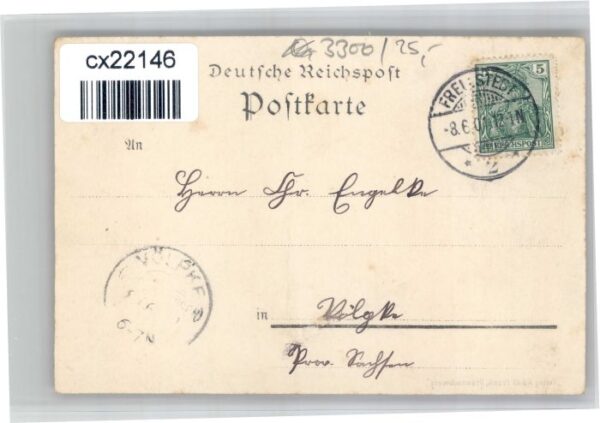 cx22146
3300/25,-
Deutsche Reichspost
Postkarte
5
REICHSPOST
-8.6.0
12-1N
* 2
An
Herrn Chr. Engelke
VÖLPKE
6-7N
in Völpke
Prov. Sachsen